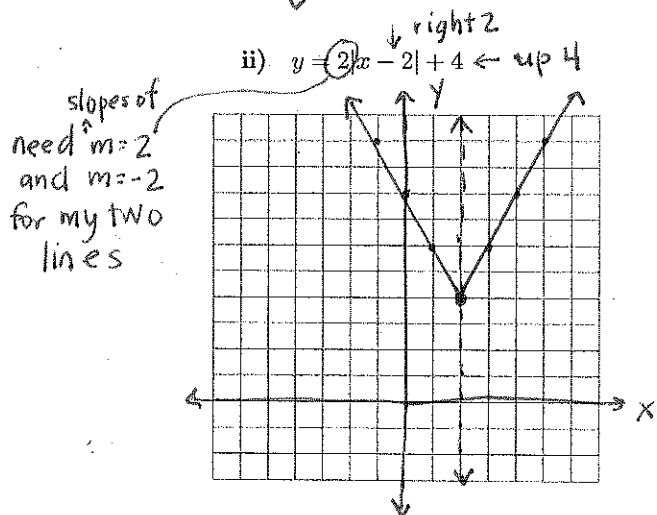 right 2
ii) y = 2|x − 2| + 4 ← up 4
slopes of
need m=2
and m=-2
for my two
lines
Y
X